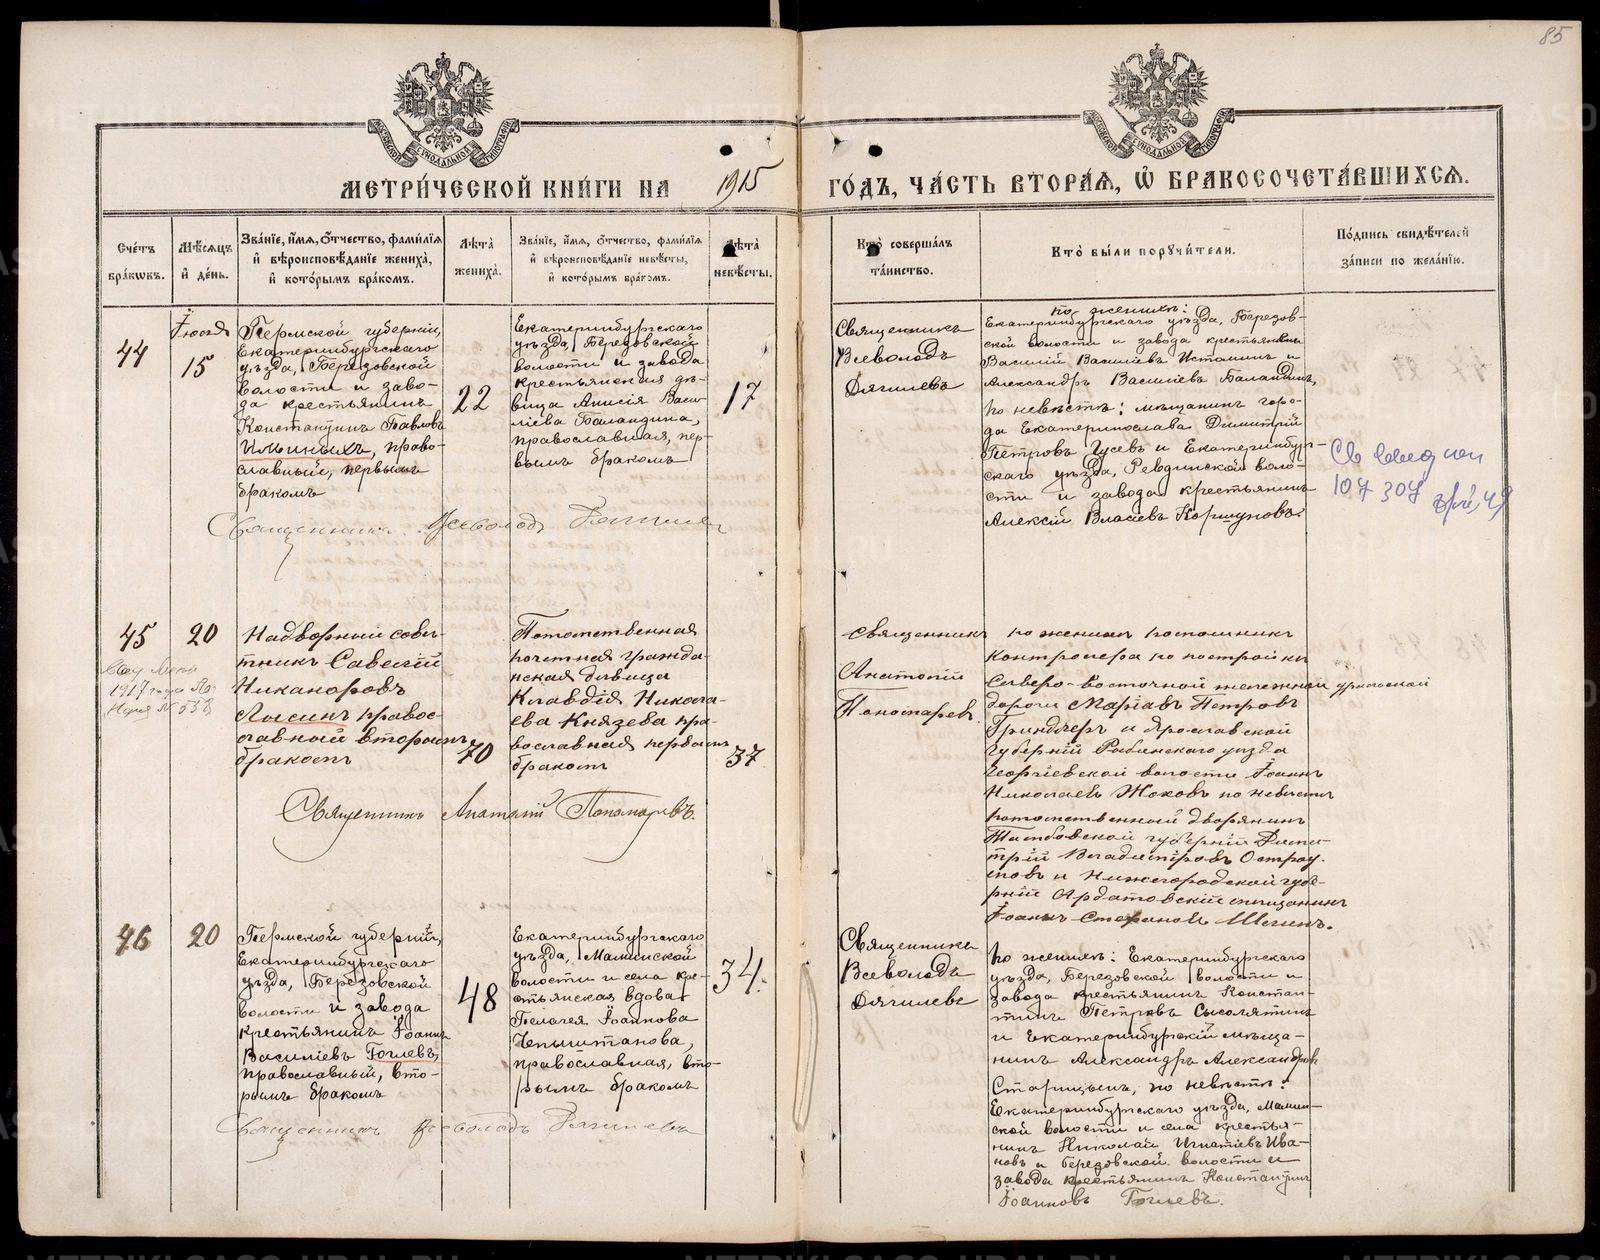 85
МОСКОВСКОЙ СѴНОДАЛЬНОЙ ТИПОГРАФІИ
МОСКОВСКОЙ СѴНОДАЛЬНОЙ ТИПОГРАФІИ
МЕТРИ́ЧЕСКОЙ КНИ́ГИ НА 1915 ГО́ДЪ, ЧА́СТЬ ВТОРА́Я, Ѡ БРАКОСОЧЕТА́ВШИХСЯ.
Сче́тъ
бра́кѡвъ.
Мѣ́сяцъ
и҆ де́нь.
Зва́нїе, и҆́мя, ѻ҆́тчество, фами́лїя
и҆ вѣроисповѣ́данїе жениха̀,
и҆ кото́рымъ бра́комъ.
Лѣ́та
жениха̀.
Зва́нїе, и҆́мя, ѻ҆́тчество, фами́лїя
и҆ вѣроисповѣ́данїе невѣ́сты,
и҆ кото́рымъ бра́комъ.
Лѣ́та
невѣ́сты.
Кто̀ соверша́лъ
та́инство.
Кто̀ бы́ли порꙋчи́тели.
По́дпись свидѣ́телей
за́писи по жела́нїю.
44
Іюля
15
Пермской губерніи,
Екатеринбургскаго
уѣзда, Березовской
волости и заво-
да крестьянинъ
Константинъ Павловъ
Ильиныхъ, право-
славный, первымъ
бракомъ
22
Екатеринбургскаго
уѣзда, Березовской
волости и завода
крестьянская дѣ-
вица Анисія Васи-
ліева Баландина,
православная, пер-
вымъ бракомъ
17
Священникъ
Всеволодъ
Дягилевъ
по женихѣ:
Екатеринбургскаго уѣзда, Березов-
ской волости и завода крестьяне
Василій Васильевъ Истоминъ и
Александръ Василіевъ Баландинъ,
по невѣстѣ: мѣщанинъ горо-
да Екатеринослава Димитрій
Петровъ Гусевъ и Екатеринбург-
скаго уѣзда, Ревдинской воло-
сти и завода крестьянинъ
Алексій Власіевъ Коршуновъ.
107 307
49
Священникъ Всеволодъ Дягилевъ
45
20
1917 года
Надворный совѣ-
тникъ Савелій
Никаноровъ
Лысинъ право-
славный вторымъ
бракомъ
70
Потомственная
почетная гражда-
нская дѣвица
Клавдія Никола-
ева Князева пра-
вославная первымъ
бракомъ
37
священникъ
Анатолій
Пономаревъ
по женихѣ помощникъ
контролера по постройкѣ
Северо-Восточной уральской железной
дороги Маріанъ Петровъ
Гриндлеръ и Ярославской
губерніи Рыбинскаго уѣзда
Георгіевской волости Іоаннъ
Николаевъ Жоховъ по невѣстѣ
потомственный дворянинъ
Тамбовской губерніи Дими-
трій Владиміровъ Остроу-
мовъ и Нижегородской губе-
рніи Ардатовскій мещанинъ
Іоаннъ Стефановъ Шелинъ.
Священникъ Анатолій Пономаревъ.
46
20
Пермской губерніи,
Екатеринбургскаго
уѣзда, Березовской
волости и завода
крестьянинъ Іоаннъ
Василіевъ Гоглевъ,
православный, вто-
рымъ бракомъ
48
Екатеринбургскаго
уѣзда, Маминской
волости и села кре-
стьянская вдова
Пелагея Іоаннова
Чепыштанова,
православная, вто-
рымъ бракомъ
34.
Священникъ
Всеволодъ
Дягилевъ
по женихѣ: Екатеринбургскаго
уѣзда, Березовской волости и
завода крестьянинъ Констан-
тинъ Петровъ Сысолятинъ
и Екатеринбургскій мѣща-
нинъ Александръ Александровъ
Старицынъ, по невѣстѣ:
Екатеринбургскаго уѣзда, Мамин-
ской волости и села крестья-
нинъ Николай Игнатіевъ Ива-
новъ и Березовской волости и
завода крестьянинъ Константинъ
Іоанновъ Гоглевъ.
Священникъ Всеволодъ Дягилевъ